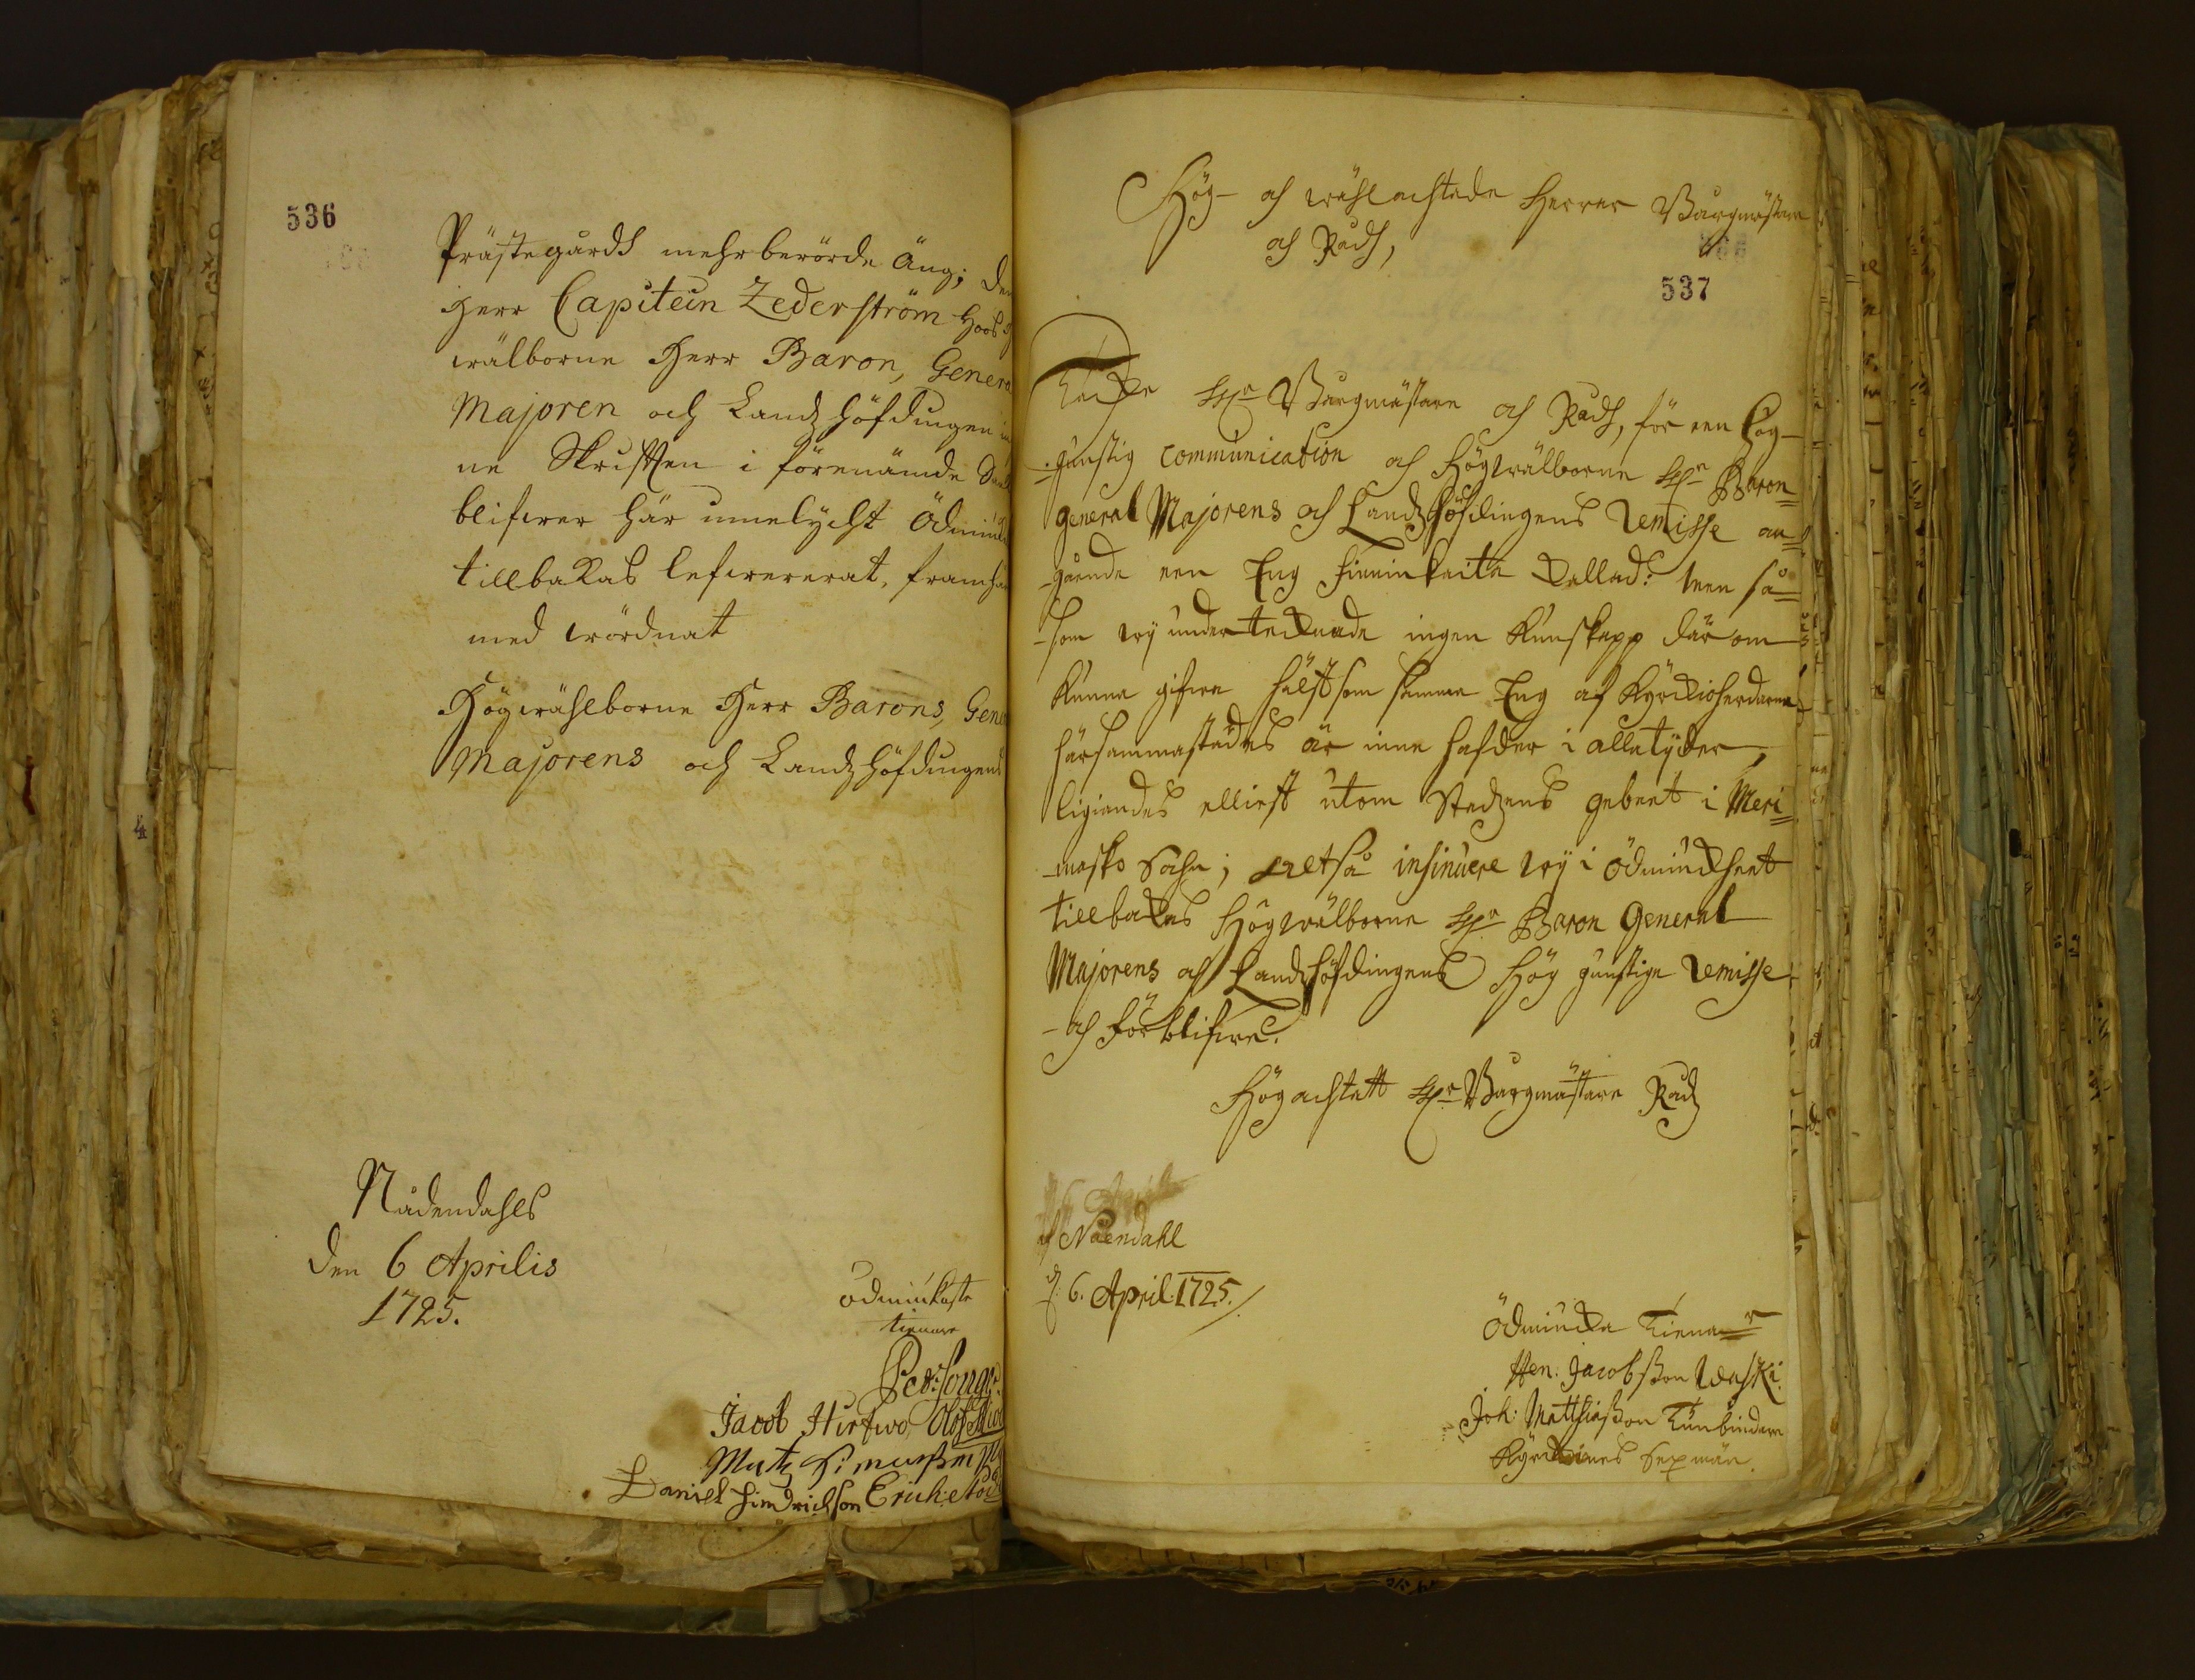 536
Prästegårds mehrberörde Äng; den
Herr Capitein Zederström hoos
wälborne Herr Baron, Genera
Majoren och Landzhöfdingen in
ne Skrifften i förenämde
blifwer här innelycht Ödmiuk
tillbakas lefwererat, framh
med wördnat
Högwählborne Herr Barons, Gene
Majorens och Landzhöfdingens
Nådendahls
den 6 Aprilis
1725.
ödmiukaste
tienare
Jacob Hirfwo
Daniel Hindrichson Erich
Hög- och wählachtade Herrar Borgmästare
och Rådh,
537
Tacke Hr Borgmästare och Rådh, för een hög-
-gunstig communication af Högwälborne Hr Baron
general Majorens och Landzhöfdingens Remisse an-
-gående een Eng Hinninkaita kallad: Men så-
-som wÿ undertecknade ingen kunskapp där om
kunne gifwa hälst som samma Eng af kyrckioherdarne
härsammastädes är inne hafder i alla tÿder,
ligiandes elliest utom Stadzens gebeet i Meri-
-masko Sochn; altså insinuere wÿ i ödmiuckheet
tillbakas Högwälborne Hr Baron General
Majorens och Landzhöfdingens Hög gunstige Remisse
-och förblifwe.
Högachtatt Hr Borgmästare Rådz
Nåendahl
d. 6. April: 1725.
Ödmiucka Tienare
Hen: Jacobsson
Joh: Matthiasson Tunbindare
Kyrckiones Sexmän.